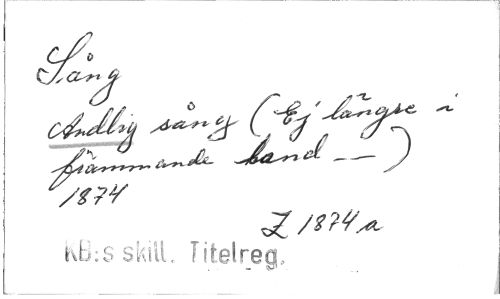 Sång
Andlig sång (Ej längre i
främmande land ——)
1874
Z 1874 a
KB:s skill. Titelreg.